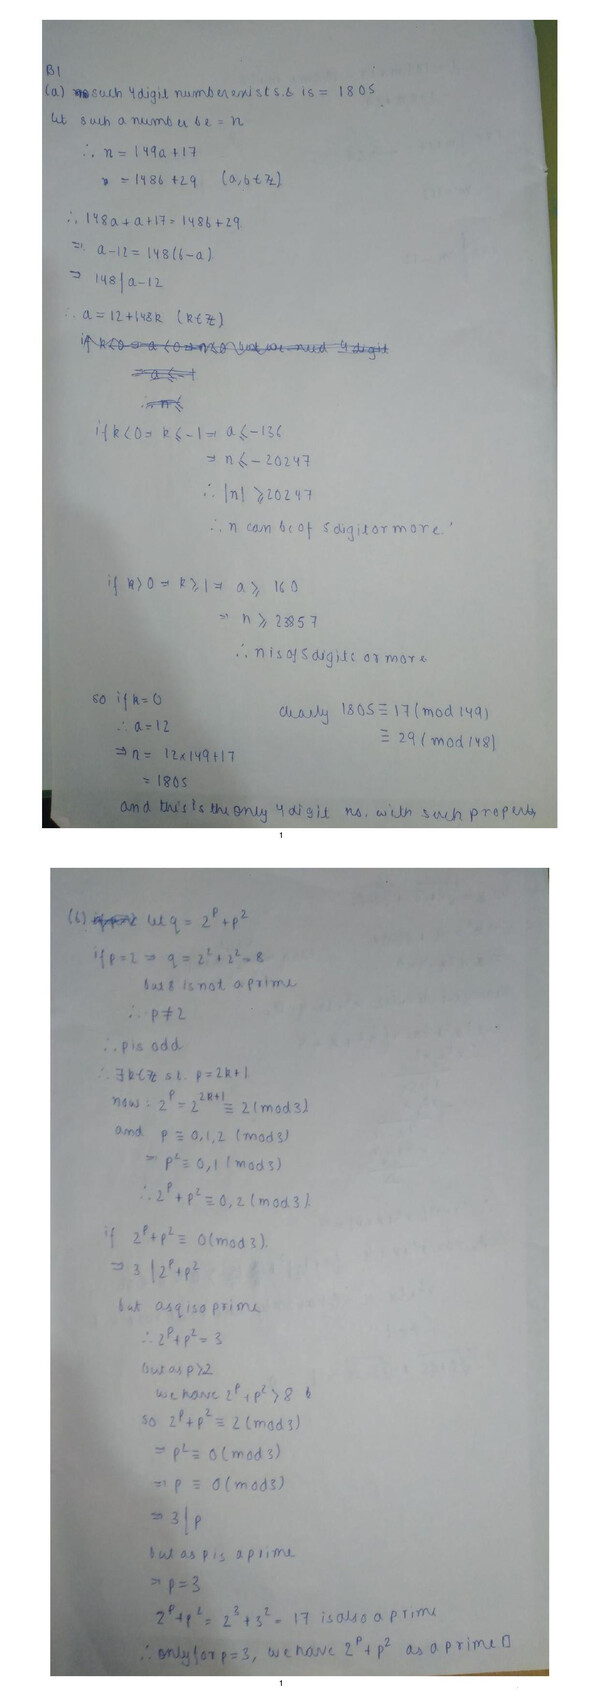 B1
(a) such 4 digit number exists & is = 1805
let such a number be = n
∴ n = 149a+17
n = 148b+29 (a,b∈ℤ)
∴ 148a+a+17 = 148b+29
⇒ a-12 = 148(b-a)
⇒ 148|a-12
∴ a = 12+148k (k∈ℤ)
if k<0 ⇒ k≤-1 ⇒ a≤-136
⇒ n≤-20247
∴ |n| ≥20247
∴ n can be of 5 digit or more.
if k>0 ⇒ k≥1 ⇒ a≥ 160
⇒ n≥ 23857
∴ n is of 5 digits or more
so if k=0
∴ a=12
⇒ n = 12×149+17
= 1805
clearly 1805 ≡ 17 (mod 149)
≡ 29 (mod 148)
and this is the only 4 digit no. with such property
1
(b) let q = 2^p+p^2
if p=2 ⇒ q = 2^2+2^2=8
but 8 is not a prime
∴ p≠2
∴ p is odd
∴ ∃k∈ℤ s.t. p=2k+1
now: 2^p = 2^{2k+1} ≡ 2 (mod 3)
and p ≡ 0,1,2 (mod 3)
⇒ p^2 ≡ 0,1 (mod 3)
∴ 2^p+p^2 ≡ 0,2 (mod 3)
if 2^p+p^2 ≡ 0 (mod 3)
⇒ 3 | 2^p+p^2
but as q is a prime
∴ 2^p+p^2 = 3
but as p>2
we have 2^p+p^2 > 8
so 2^p+p^2 ≡ 2 (mod 3)
⇒ p^2 ≡ 0 (mod 3)
⇒ p ≡ 0 (mod 3)
⇒ 3|p
but as p is a prime
⇒ p=3
2^p+p^2 = 2^3+3^2 = 17 is also a prime
∴ only for p=3, we have 2^p+p^2 as a prime □
1